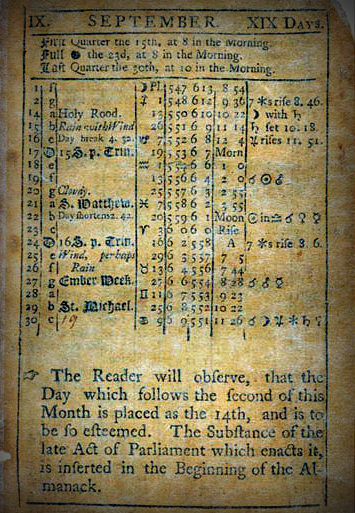 IX. SEPTEMBER. XIX Days.
First Quarter the 15th, at 8 in the Morning.
Full ● the 23d, at 8 in the Morning.
Last Quarter the 30th, at 10 in the Morning.
1 f ☽ Pl. 5 47 6 13 8 54
2 g 1 5 48 6 12 9 36 7 *s rise 8. 46.
14 a Holy Rood. 13 5 50 6 10 10 22 ☽ with ♄
15 b Rain with Wind 26 5 51 6 9 11 14 ♄ set 10. 18.
16 c Day break 4. 52. 7 5 52 6 8 12 4 rises 11. 51.
17 15 S. p. Trin. 19 5 53 6 7 Morn
18 e ♒ 1
19 f 13 5 56 6 4 2 0 ☌ ☉ ♂
20 g Cloudy. 25 5 57 6 3 2
21 a S. Matthew. ♓ 7 5 58 6 2 3 55
22 b Day shortens 2. 42. 20 5 59 6 1 Moon ☉ in ♎ ☌ ☿ ♀
23 c ♈ 3 6 0 6 0 Rise
24 16 S. p. Trin. 16 6 2 5 58 A 7 *s rise 8. 6.
25 e Wind, perhaps 29 6 3 5 57 7 5
26 f Rain ♉ 13 6 4 5 56 7 44
27 g Ember Week. 27 6 6 5 54 8 28 ☌ ♂ ☿
28 a ♊ 11 6 7 5 53 9 23
29 b St. Michael. 25 6 8 5 52 10 22
30 c 19 ♋ 9 6 9 5 51 11 26
☞ The Reader will observe, that the
Day which follows the second of this
Month is placed as the 14th, and is to
be so esteemed. The Substance of the
late Act of Parliament which enacts it,
is inserted in the Beginning of the Al-
manack.